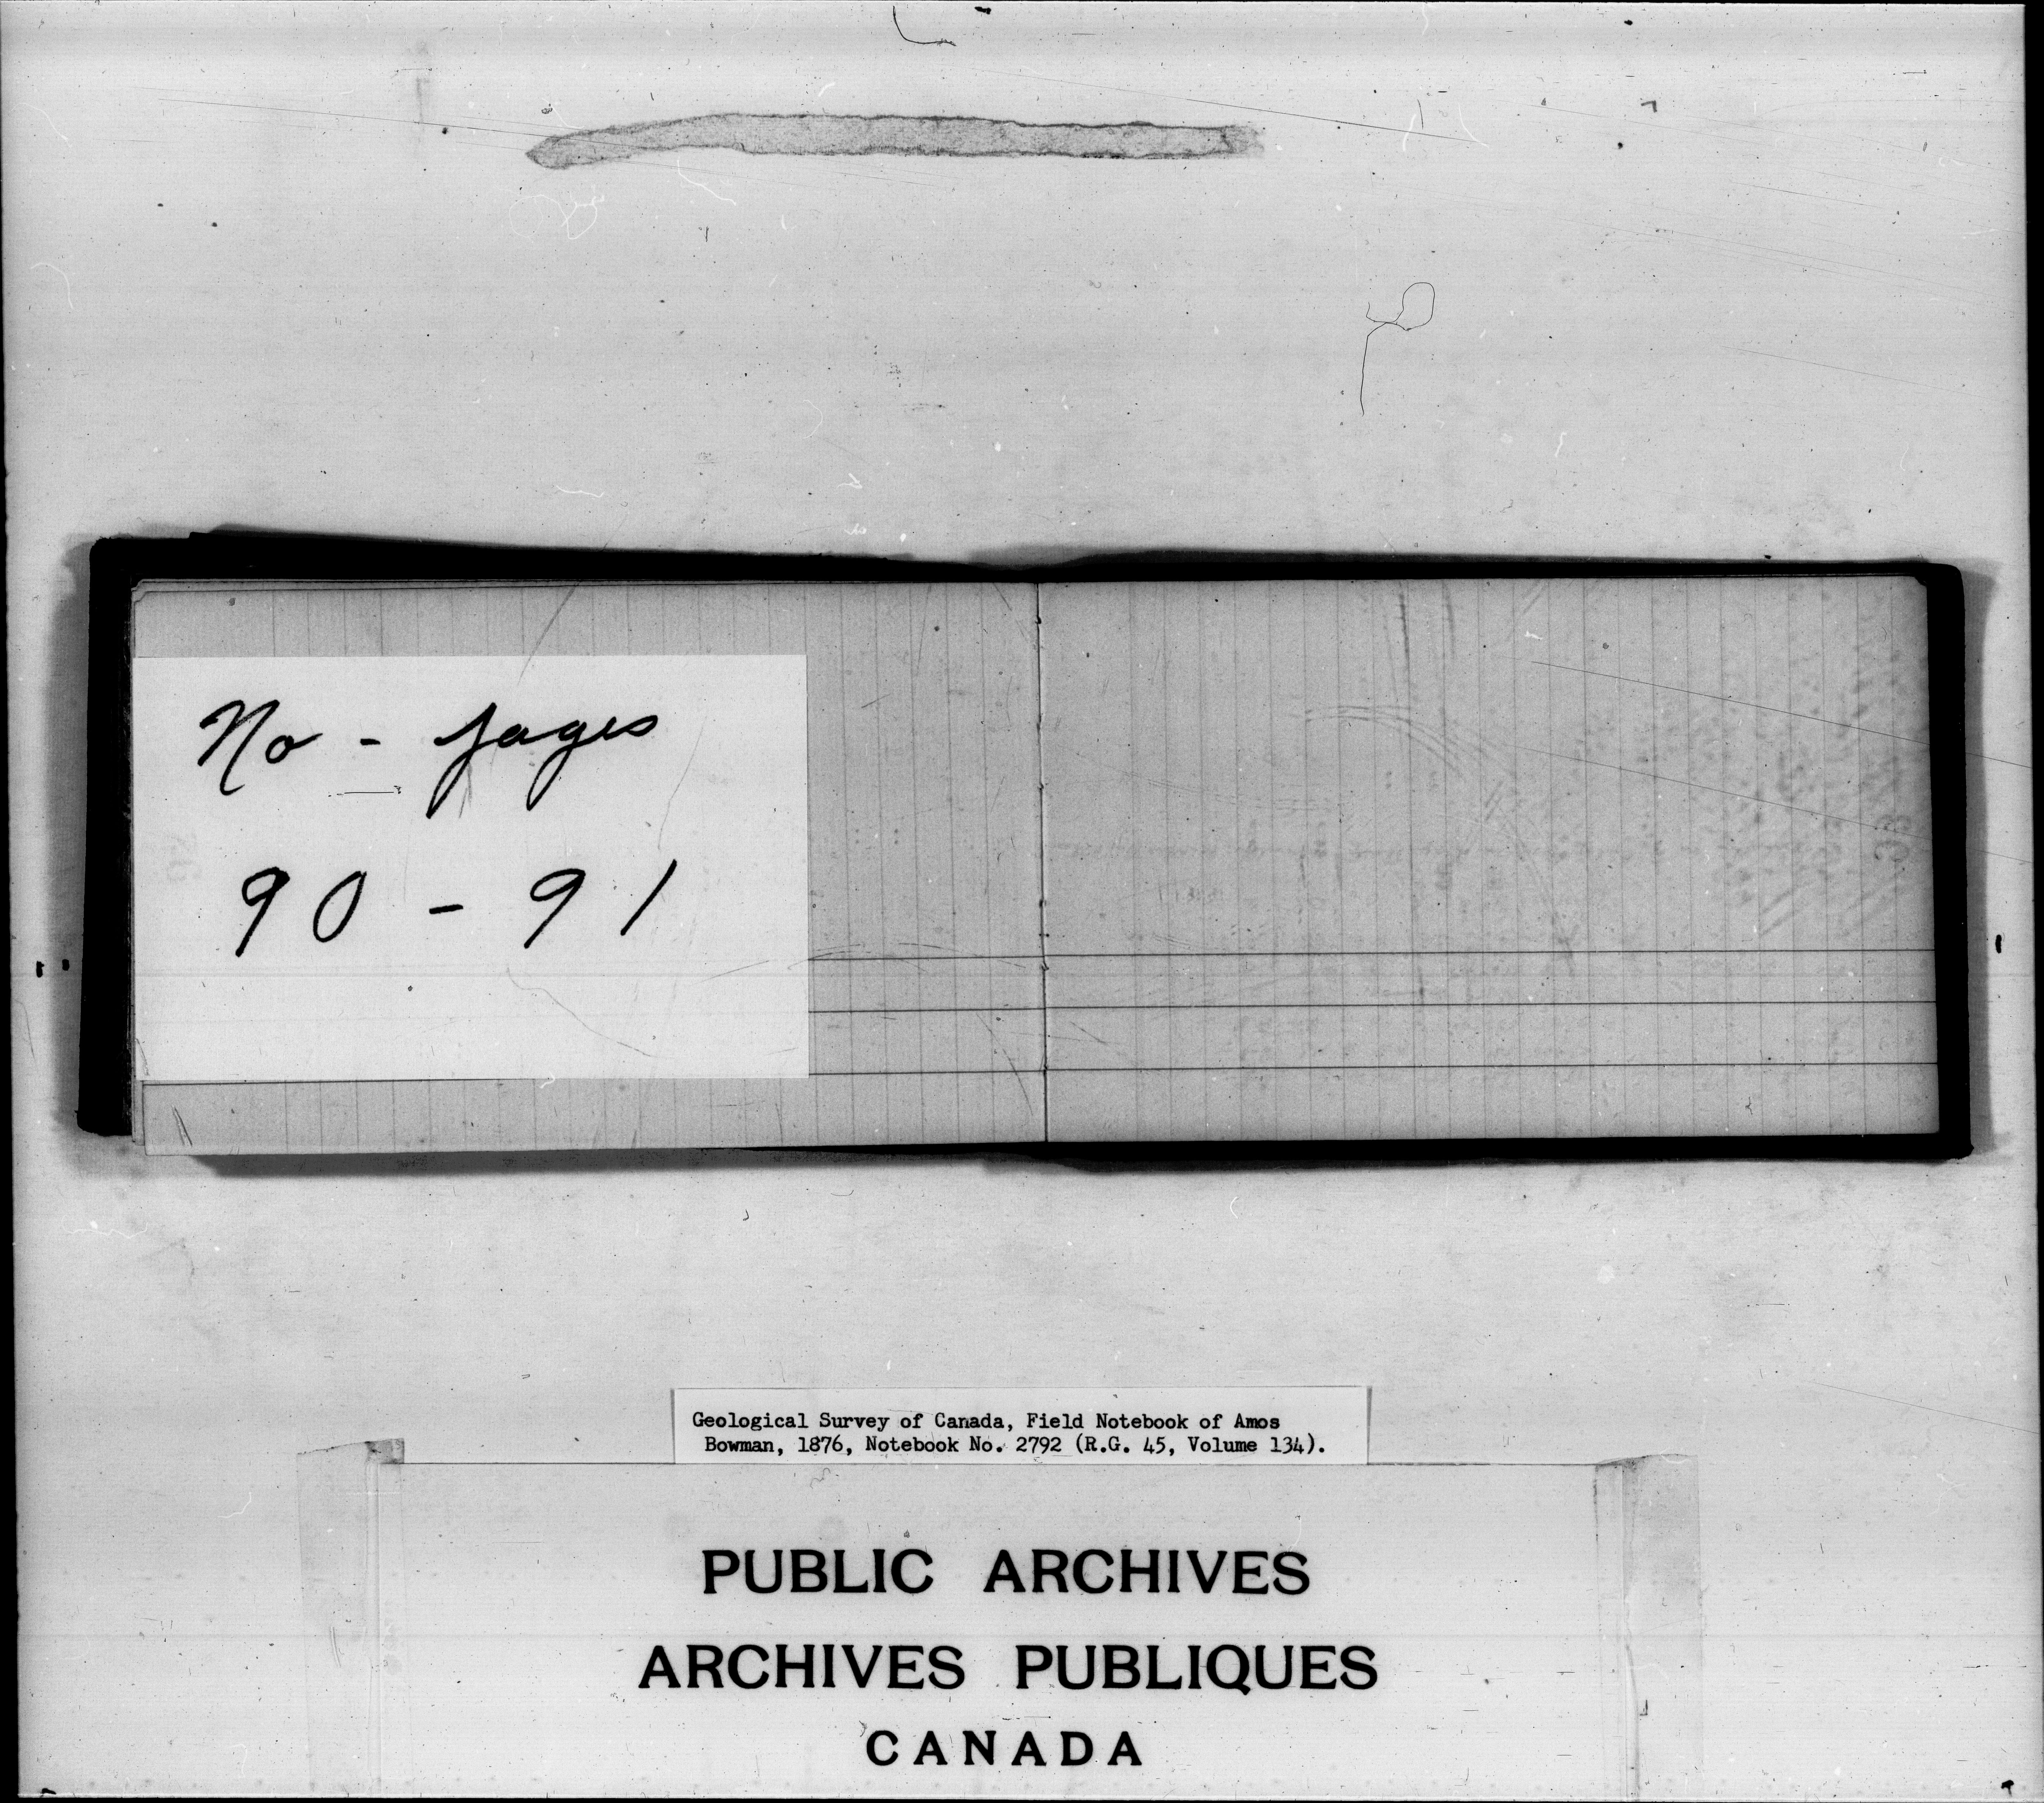 No - pages
90 - 91
Geological Survey of Canada, Field Notebook of Amos
Bowman, 1876, Notebook No. 2792 (R.G. 45, Volume 134).
PUBLIC ARCHIVES
ARCHIVES PUBLIQUES
CANADA